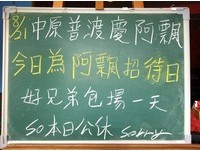 8/31中原普渡慶阿飄
今日為阿飄招待日
好兄弟包場一天
so本日公休 sorry